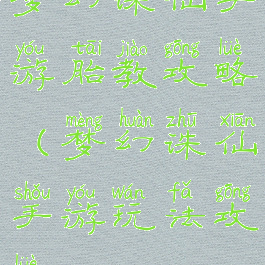 yóu tāi jiào gōng lüè
游胎教攻略
mèng huàn zhū xiān
(梦幻诛仙
shǒu yóu wán fǎ gōng
手游玩法攻